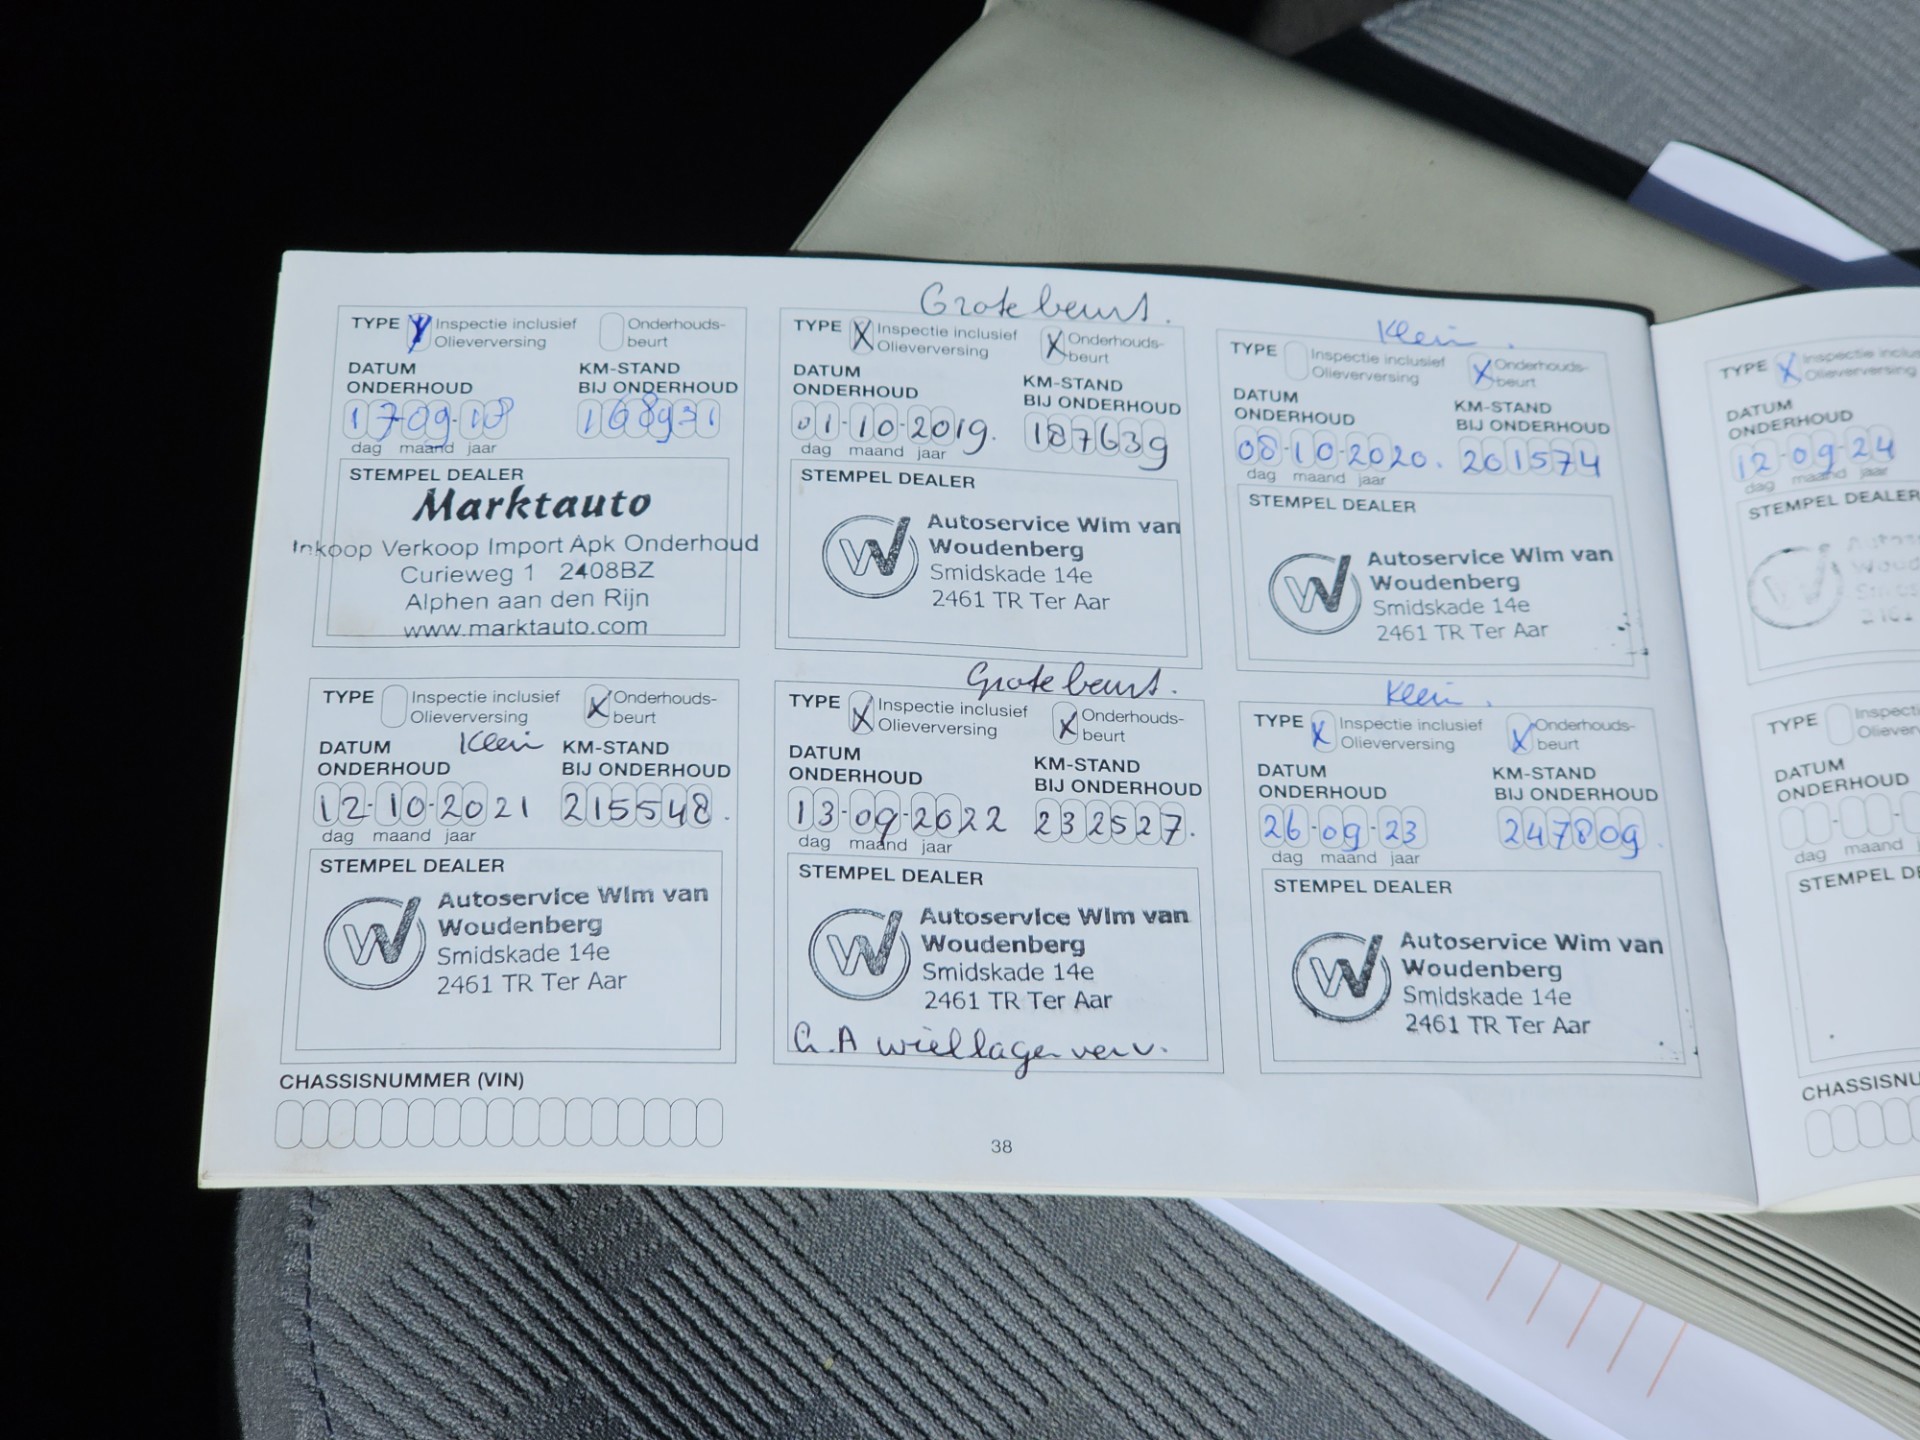 TYPE Inspectie inclusief Onderhouds-
Olieverversing beurt
DATUM KM-STAND
ONDERHOUD BIJ ONDERHOUD
17-09-18 168931
dag maand jaar
STEMPEL DEALER
Marktauto
Inkoop Verkoop Import Apk Onderhoud
Curieweg 1 2408BZ
Alphen aan den Rijn
www.marktauto.com
Grote beurt.
TYPE X Inspectie inclusief X Onderhouds-
Olieverversing beurt
DATUM KM-STAND
ONDERHOUD BIJ ONDERHOUD
01-10-2019. 187639
dag maand jaar
STEMPEL DEALER
Autoservice Wim van
Woudenberg
Smidskade 14e
2461 TR Ter Aar
Klein.
TYPE Inspectie inclusief X Onderhouds-
Olieverversing beurt
DATUM KM-STAND
ONDERHOUD BIJ ONDERHOUD
08-10-2020. 201574
dag maand jaar
STEMPEL DEALER
Autoservice Wim van
Woudenberg
Smidskade 14e
2461 TR Ter Aar
TYPE Inspectie inclusief X Onderhouds-
Olieverversing beurt
Klein
DATUM KM-STAND
ONDERHOUD BIJ ONDERHOUD
12-10-2021 215548.
dag maand jaar
STEMPEL DEALER
Autoservice Wim van
Woudenberg
Smidskade 14e
2461 TR Ter Aar
Grote beurt.
TYPE X Inspectie inclusief X Onderhouds-
Olieverversing beurt
DATUM KM-STAND
ONDERHOUD BIJ ONDERHOUD
13-09-2022 232527.
dag maand jaar
STEMPEL DEALER
Autoservice Wim van
Woudenberg
Smidskade 14e
2461 TR Ter Aar
A wiellager verv.
Klein.
TYPE X Inspectie inclusief X Onderhouds-
Olieverversing beurt
DATUM KM-STAND
ONDERHOUD BIJ ONDERHOUD
26-09-23 247809.
dag maand jaar
STEMPEL DEALER
Autoservice Wim van
Woudenberg
Smidskade 14e
2461 TR Ter Aar
CHASSISNUMMER (VIN)
38
TYPE X Inspectie inclus
Olieverversing
DATUM
ONDERHOUD
12-09-24
dag maand jaar
STEMPEL DEALER
TYPE Inspecti
Oliever
DATUM
ONDERHOUD
dag maand
STEMPEL DE
CHASSISNU